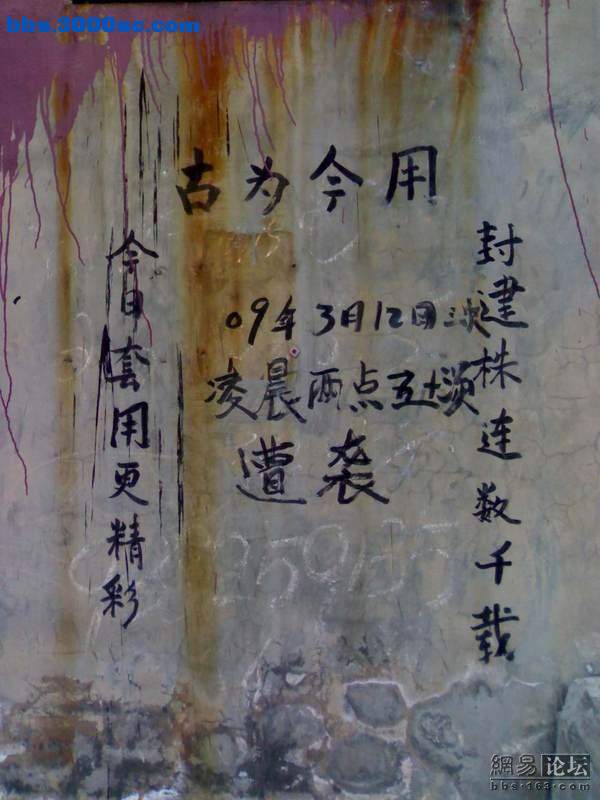 bbs.3000sc.com
古为今用
封建株连数千载
09年3月12日三次
凌晨两点五十分
遭袭
今日套用更精彩
網易论坛
bbs.163.com